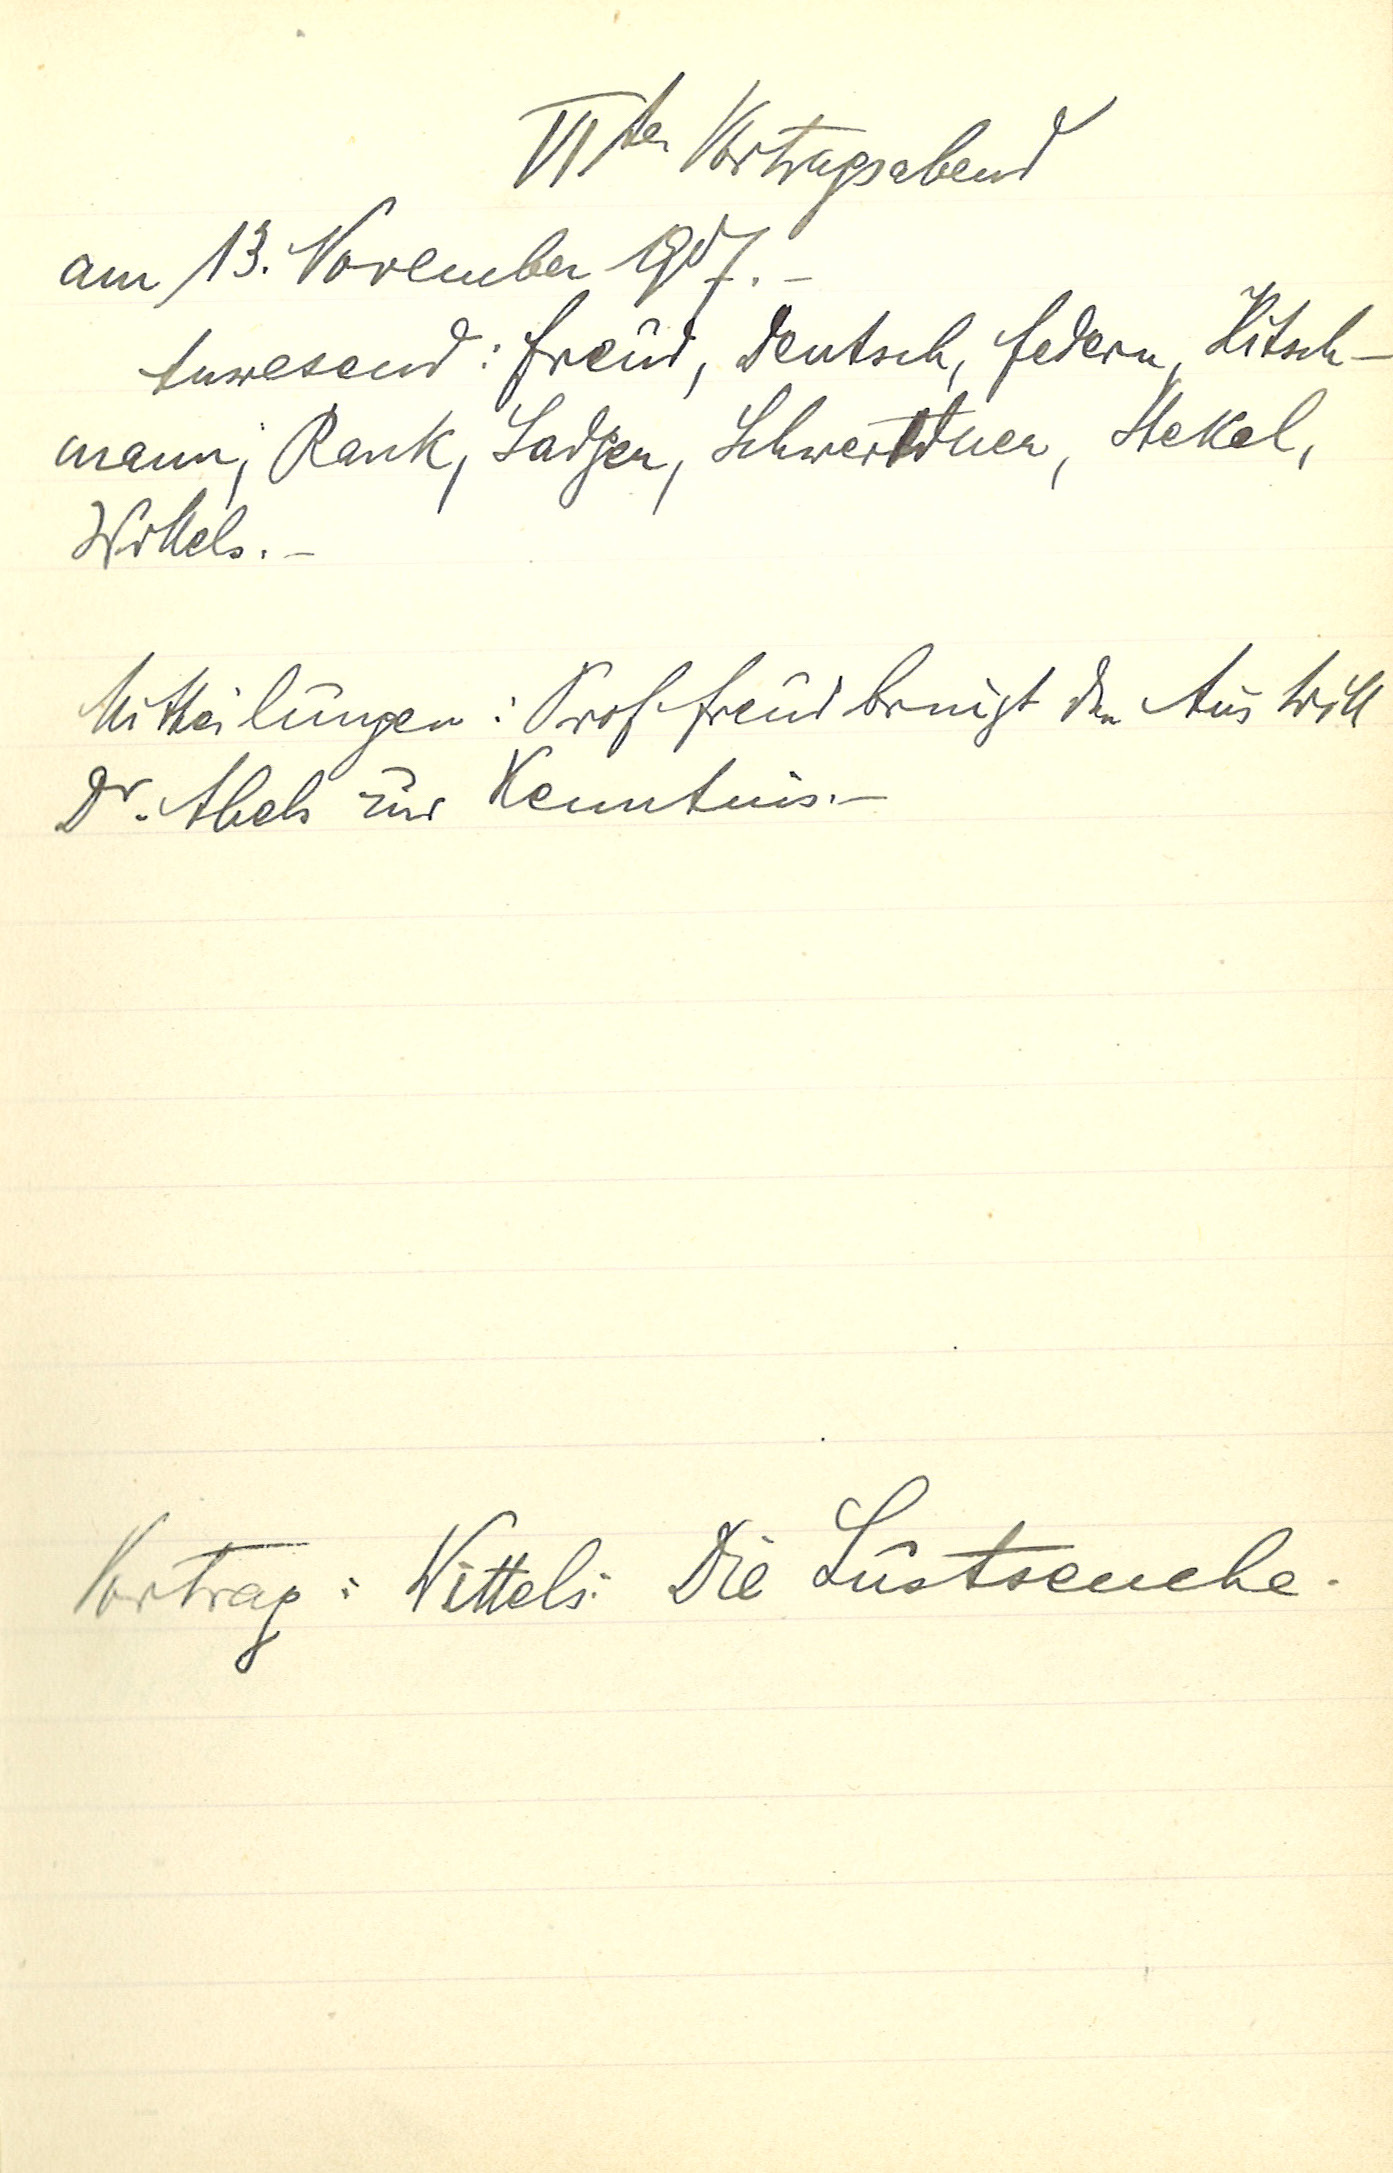 VIter Vortragsabend
am 13. November 1907. –
Anwesend: Freud, Deutsch, Federn, Hitsch-
mann, Rank, Sadger, Schwerdtner, Stekel,
Wittels. –
Mittheilungen: Prof Freud bringt den Austritt
Dr. Abels zur Kenntnis. –
Vortrag: Wittels: Die Lustseuche.